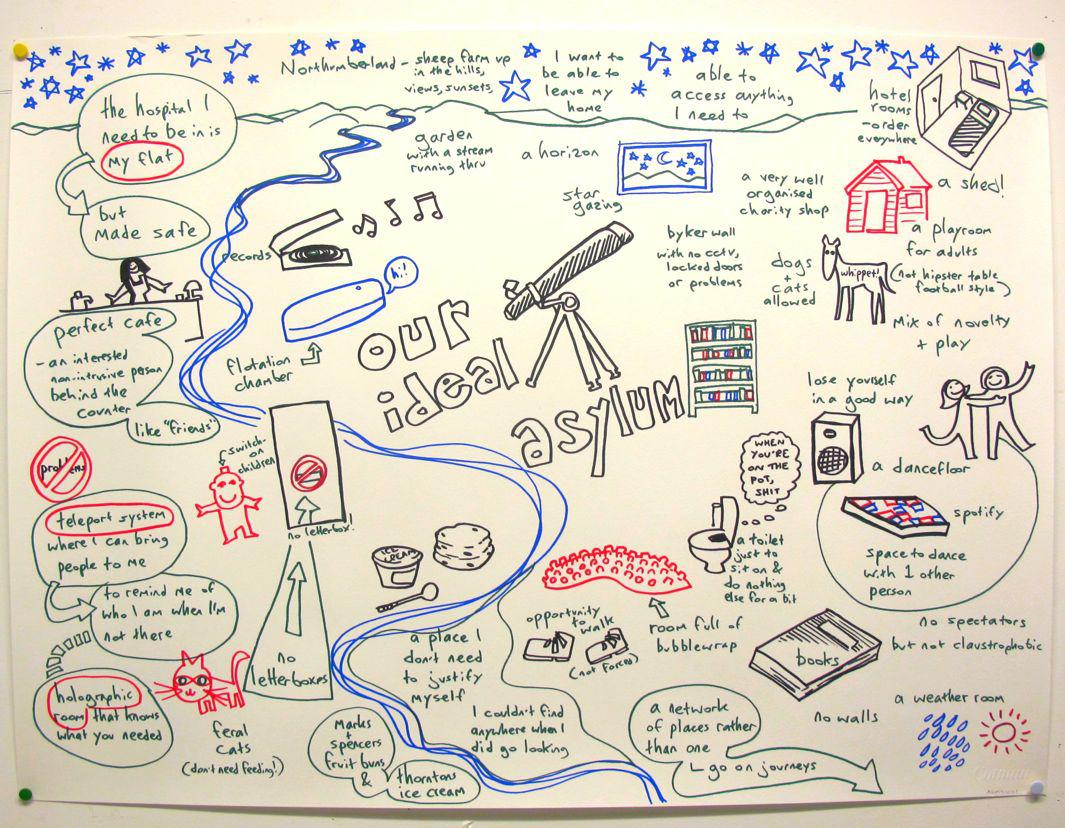 Northumberland - sheep farm up
in the hills,
views, sunsets,
I want to
be able to
leave my
home
able to
access anything
I need to
hotel
rooms
- order
everywhere
the hospital I
need to be in is
my flat
but
made safe
garden
with a stream
running thru
a horizon
star
gazing
a very well
organised
charity shop
a shed!
records
hi!
flotation
chamber
byker wall
with no cctv,
locked doors
or problems
dogs
+
cats
allowed
whippet!
a playroom
for adults
(not hipster table
football style)
Mix of novelty
+ play
perfect cafe
- an interested
non-intrusive person
behind the
counter
like "friends"
our
ideal
asylum
lose yourself
in a good way
a dancefloor
spotify
space to dance
with 1 other
person
no spectators
but not claustrophobic
problems
switch-
on
children
no letterbox!
no
letterboxes
teleport system
where I can bring
people to me
to remind me of
who I am when I'm
not there
holographic
room that knows
what you needed
feral
cats
(don't need feeding!)
ICE
CREAM
WHEN
YOU'RE
ON THE
POT,
SHIT
a toilet
just to
sit on &
do nothing
else for a bit
opportunity
to
walk
(not forced)
room full of
bubblewrap
books
a place I
don't need
to justify
myself
I couldn't find
anywhere when I
did go looking
Marks
+
spencers
fruit buns
&
thorntons
ice cream
a network
of places rather
than one
go on journeys
no walls
a weather room